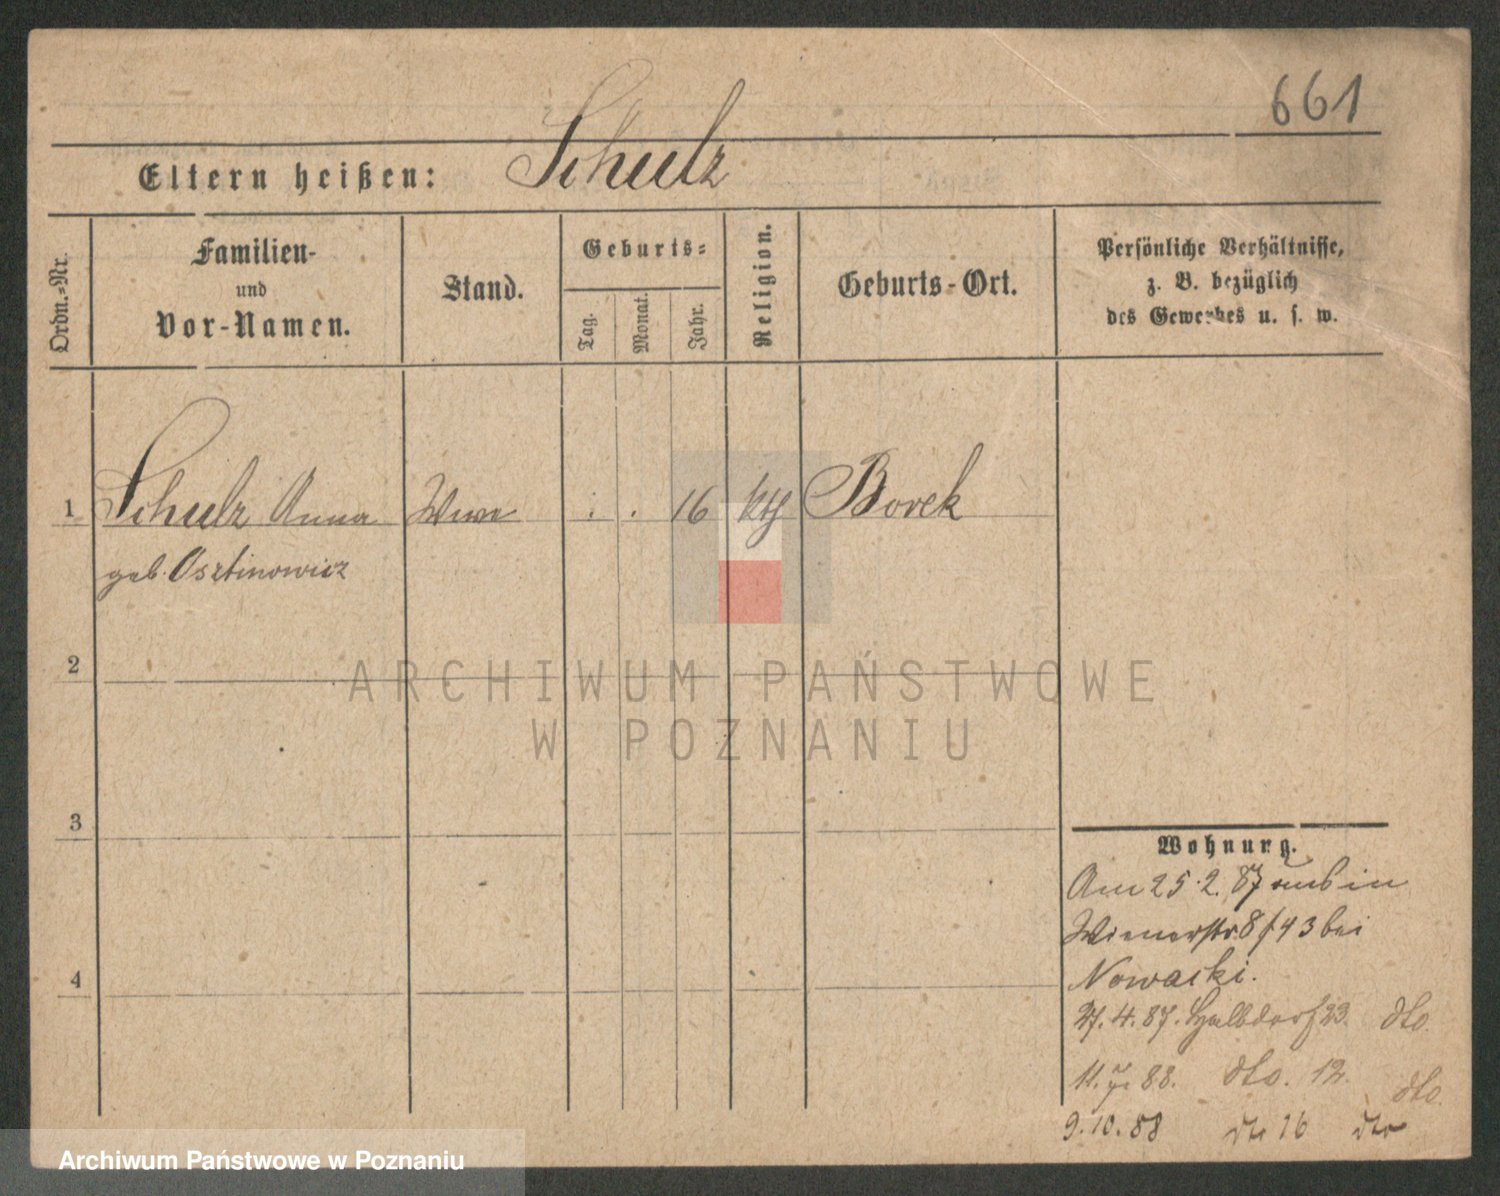 661
Eltern heißen: Schulz
Ordn.-Nr.
Familien-
und
Vor-Namen.
Stand.
Geburts-
Tag.
Monat.
Jahr.
Religion.
Geburts-Ort.
Persönliche Verhältnisse,
z. B. bezüglich
des Gewerbes u. s. w.
1 Schulz Anna Wwe . . 16 kth Borek
geb. Osztinowicz
2
3
4
ARCHIWUM PAŃSTWOWE
W POZNANIU
Wohnung.
Am 25.2.87 in
Wienerstr. 8/43 bei
Nowacki.
27.4.87. Halbdorf 23. dto.
11.7. 88. dto. 12. dto.
9.10.88 dto 16 dto
Archiwum Państwowe w Poznaniu